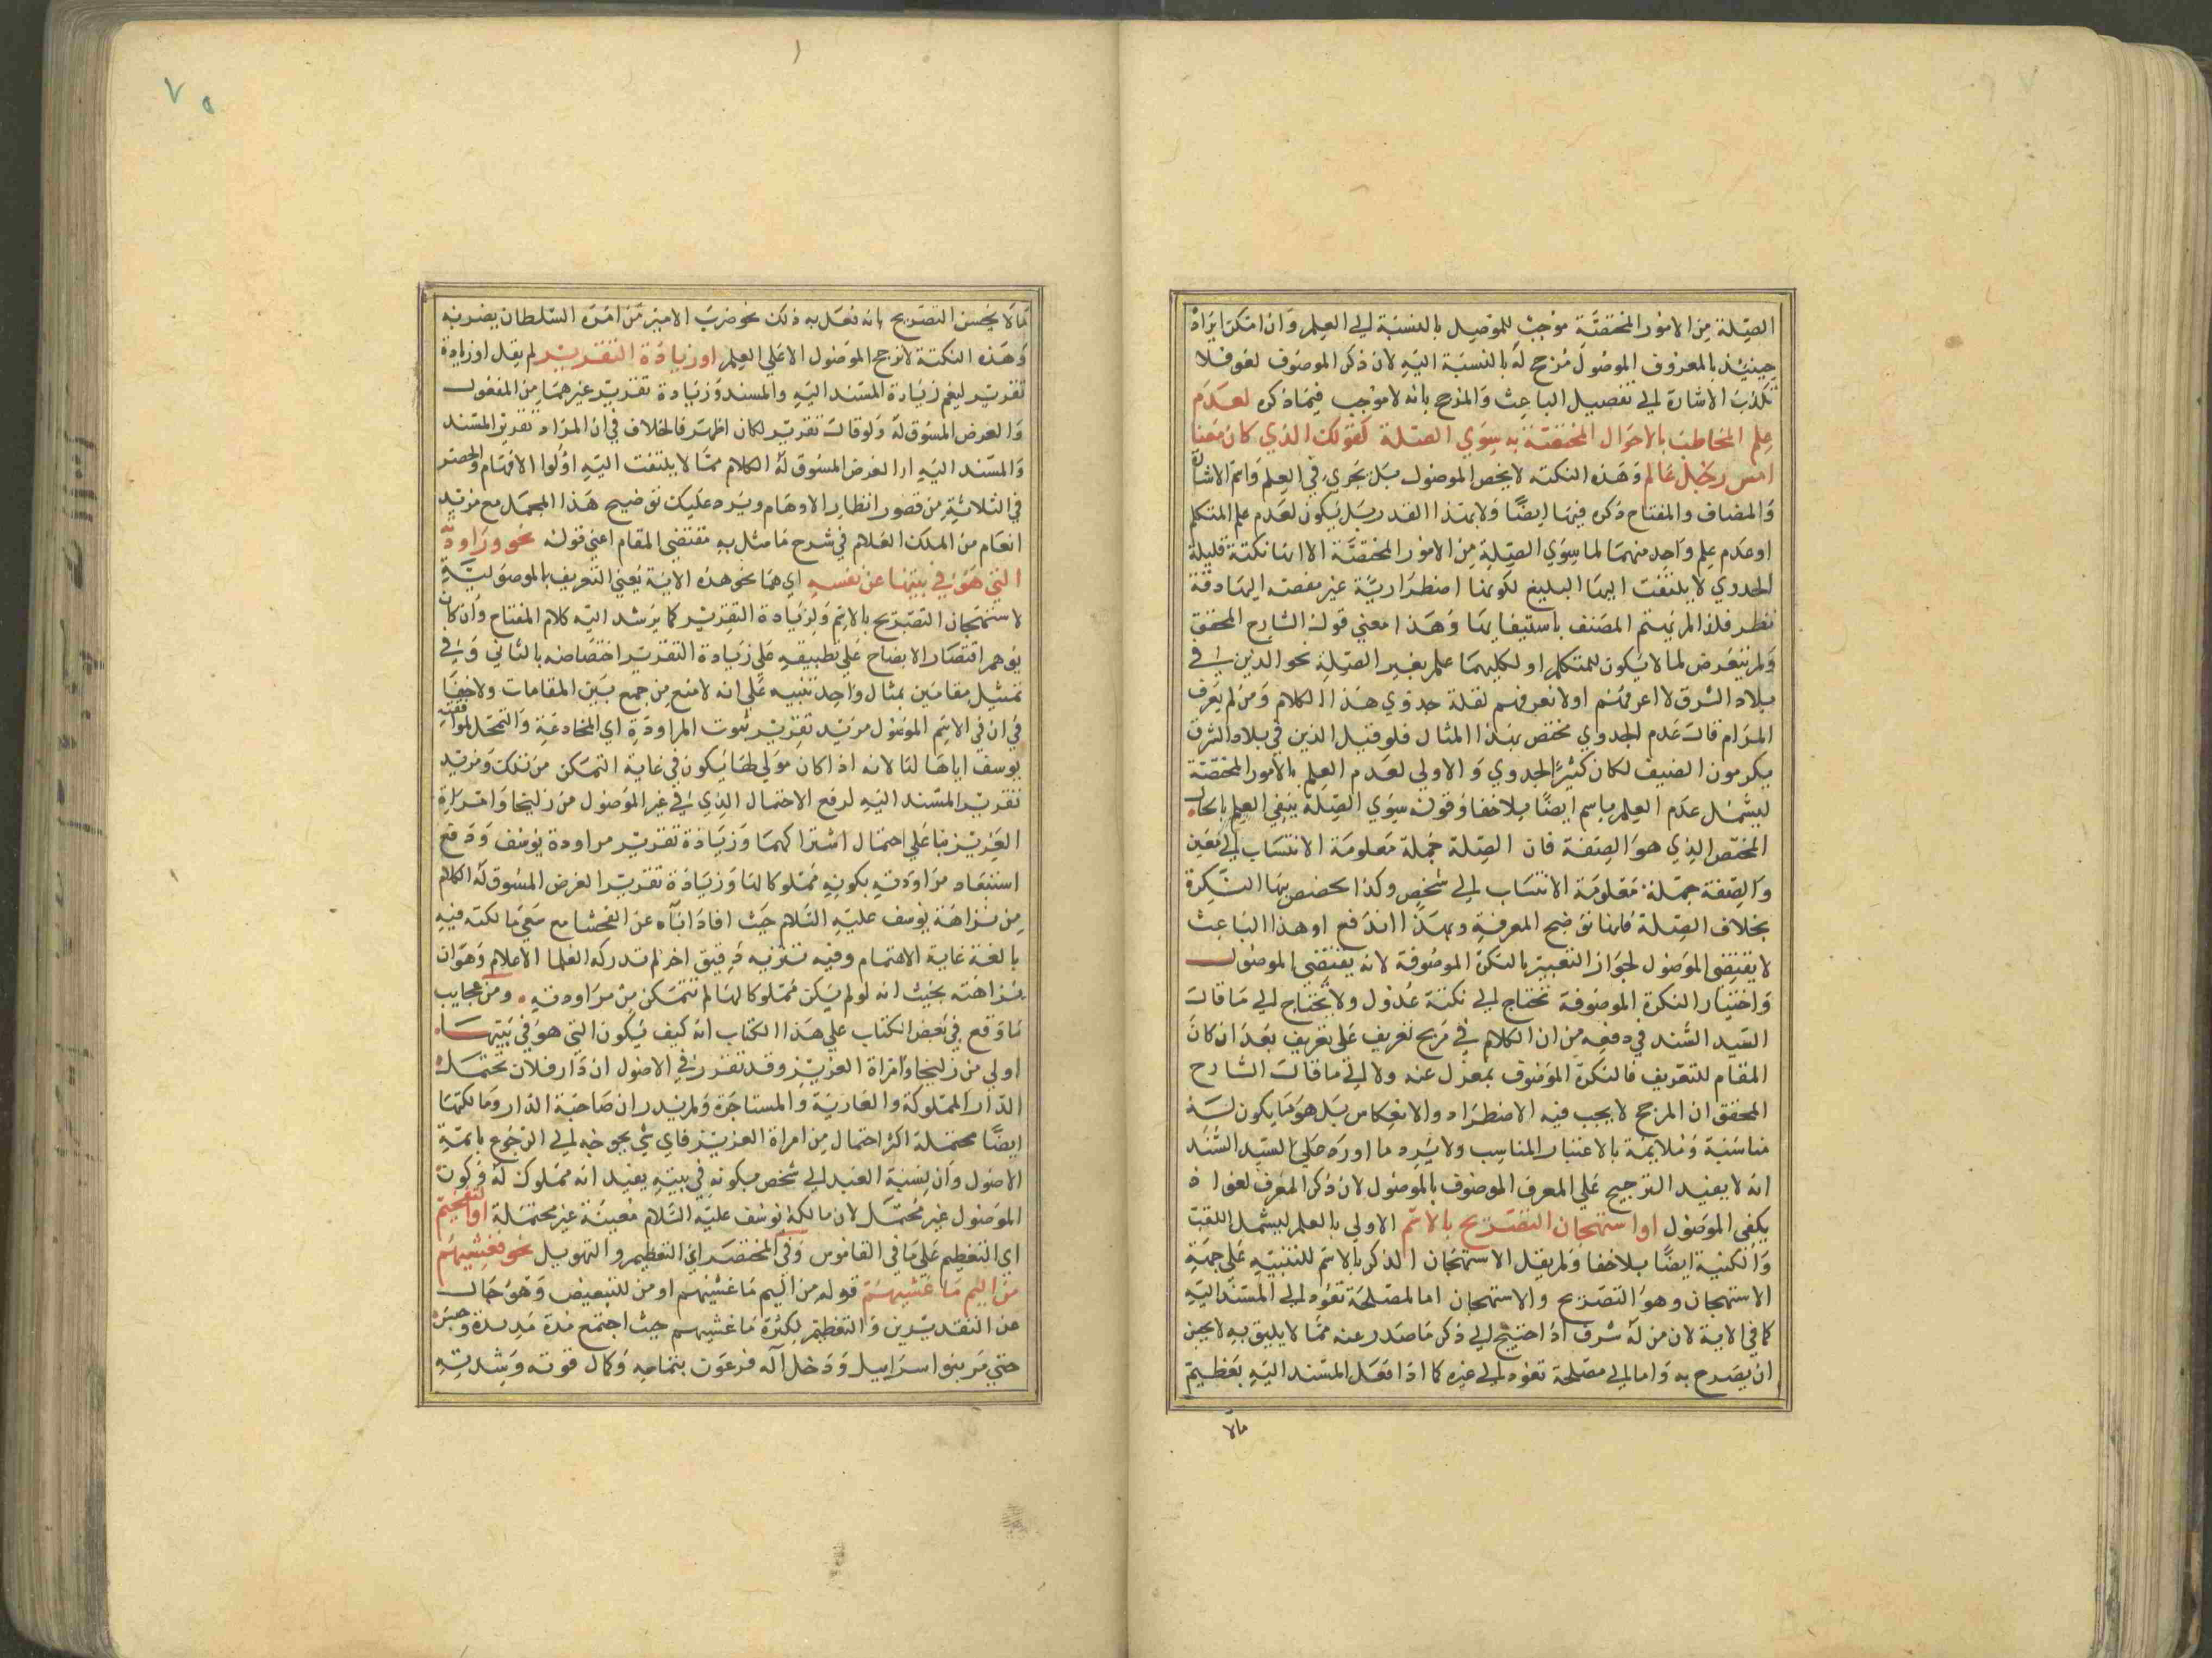 الصّلة من الامور المختصّة موجب للموصيل بالنسبة الي العلم وان امتكن ايراد
حينيئذ بالمعروف الموصول مرجح له بالنسبة اليه لان ذكر الموصوف لغو فلا
تكذب الاشارة الي تفصيل الباعث والمرجح بانه لا موجب فيما ذكره لعدم
علم المخاطب بالاحوال المختصّة به سوي الصّلة كقولك الذي كان معنا
امس رجل عالم وهذه النكته لا يخص الموصول بل يجري في العلم واسم الاشارة
والمضاف والمفتاح ذكره فيها ايضًا ولا بهذا القدر بل يكون لعدم علم المتكلم
او عدم علم واحد منهما لما سوي الصّلة من الامور المختصّة الا انها نكتة قليلة
الجدوي لا يلتفت اليها البليغ لكونها اضطراريّة غير مفصه اليها دقة
نظر فلذا لم يهتم المصنف باستيفايها وهذا معني قول الشارح المحقق
ولم يتعرض لما لا يكون للمتكلم او لكليهما علم بغير الصّلة نحو الذين في
بلاد الشرق لا اعرفهم اولا نعرفهم لقلة جدوي هذا الكلام ومن لم يعرف
المرام قال عدم الجدوي مختص بهذا المثال فلو قيل الذين في بلاد الشرق
يكرمون الضيف لكان كثير الجدوي والاولي لعدم العلم بالامور المختصّة
ليشمل عدم العلم باسم ايضًا بلا خفا وقوله سوي الصّلة ينفي العلم بالحال
المختص الذي هو الصفة فان الصّلة جملة معلومة الانتساب الي معين
والصفة جملة معلومة الانتساب الي شخص وكذا تخصص بها النكرة
بخلاف الصّلة فانها توضح المعرفة وبهذا اندفع او هذا الباعث
لا يقتضي الموصول لجواز التعبير بالنكرة الموصوفة لانه يقتضي الموصول
واختيار النكرة الموصوفة تحتاج الي نكتة عدول ولا يحتاج الي ما قال
السّيد السّند في دفعه من ان الكلام في مرجح تعريف علي تعريف بعد ان كان
المقام للتعريف فالنكرة الموصوف بمعزل عنه ولا الي ما قال الشارح
المحقق ان المرجح لا يجب فيه الاضطراد والانعكاس بل هو ما يكون له
مناسبة وملايمة بالاعتبار المناسب ولا يرد ما اورده علي السّيد السّند
انه لا يفيد الترجيح علي المعرف الموصوف بالموصول لان ذكر المعرف لغو اذ
يكفي الموصول او استهجان التصريح بالاسم الاولي بالعلم ليشمل اللقب
والكنية ايضًا بلا خفا ولم يقل الاستهجان الذكر بالاسم للتنبيه علي جهة
الاستهجان وهو التصريح والاستهجان اما لمصلحة تعود الي المسند اليه
كما في الاية لان من له شرف اذا احتيج الي ذكر ما صدر عنه ممّا لا يليق به لا يحسن
ان يصرح به واما الي مصلحة تعود الي غيره كما اذا فعل المسند اليه بعظيم
مالا
٧٥
مما لا يحسن التصريح بانه فعل به ذلك نحو ضرب الامير من امره السّلطان يضربه
وهذه النكتة لا ترجح الموصول الا علي العلم او زيادة التقرير لم يقل او زيادة
تقرير ليعم زيادة المسند اليه والمسند وزيادة تقرير غيرهما من المفعول
والغرض المسوق له ولو قال تقرير لكان اظهر فالخلاف في ان المراد تقرير المسند
والمسند اليه او الغرض المسوق له الكلام ممّا لا يلتفت اليه اولوا الافهام والحصر
في الثلاثة من قصور انظار الاوهام ويرد عليك توضيح هذا المجمل مع مزيد
انعام من الملك العلام في شرح ما مثل به مقتضي المقام اعني قوله نحو وراودته
التي هو في بيتها عن نفسه اي هما نحو هذه الاية يعني التعريف بالموصولية
لاستهجان التصريح بالاسم ولزيادة التقرير كما يرشد اليه كلام المفتاح وان كان
يوهم اقتصار الايضاح علي تطبيقه علي زيادة التقرير اختصاصه بالثاني وفي
تمثيل مقامين بمثال واحد تنبيه علي انه لا منع من جمع بين المقامات ولا خفا
في ان في الاسم الموصول مزيد تقرير ثبوت المراودة اي المخادعة والتمحل لموافقة
يوسف اياها لها لانه اذا كان مولي لها يكون في غاية التمكن من تلك ومزيد
تقرير المسند اليه لدفع الاحتمال الذي في غير الموصول من زليخا وامراة
العزيز بنا علي احتمال اشتراكهما وزيادة تقرير مراودة يوسف ودفع
استبعاد مراودته بكونه مملوكا لها وزيادة تقرير الغرض المسوق له الكلام
من نزاهة يوسف عليه السّلام حيث افاد اباه عن الفحشا مع سعي مالكته فيه
بالغة غاية الاهتمام وفيه تنزيه دقيق اخر لم تدركه العلما الاعلام وهو ان
نزاهته بحيث انه لو لم يكن مملوكا لها لم تتمكن من مراودته ومن عجايب
ما وقع في بعض الكتاب علي هذا الكتاب انه كيف يكون التي هو في بيتها
اولي من زليخا وامراة العزيز وقد تقرر في الاصول ان دار فلان تحتمل
الدار المملوكة والعارية والمستاجرة ولم يدر ان صاحبة الدار ومالكتها
ايضًا محتملة اكثر احتمال من امراة العزيز فاي شي يحوجه الي الرجوع بايمة
الاصول وان نسبة العبد الي شخص بكونه في بيته يفيد انه مملوك له وكون
الموصول غير محتمل لان مالكة يوسف عليه السّلام معينة غير محتملة او التفخيم
اي التعظيم علي ما في القاموس وفي المختصر اي التعظيم والتهويل نحو فغشيهم
من اليم ما غشيهم قوله من اليم ما غشيهم او من للتبعيض وهو حال
عن التقديرين والتعظيم لكثرة ما غشيهم حيث اجتمع مدة مديدة وحبره
حتي مر بنوا اسراييل ودخل اله فرعون بتمامه وكمال قوته وشدته